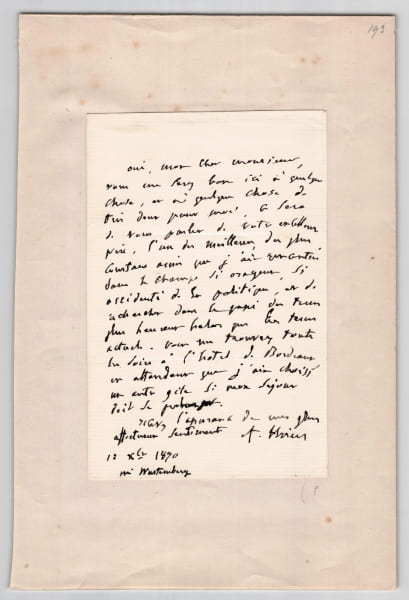 193
oui, mon cher monsieur,
vous me serez bon ici à quelque
chose, et à quelque chose de
très doux pour moi, ce sera
de vous parler de votre excellent
père, l'un des meilleurs, des plus
constans amis que j'ai rencontrés
dans le champ si orageux, si
accidenté de la politique, et de
chercher dans le passé des tems
plus heureux hélas que les tems
actuels. vous me trouverez toute
les soirs à l'hôtel de Bordeaux
en attendant que j'aie choisi
un autre gîte si mon séjour
doit se prolonger.
l'assurance de mes plus
affectueux sentiments A. Thiers
12 Xbre 1870